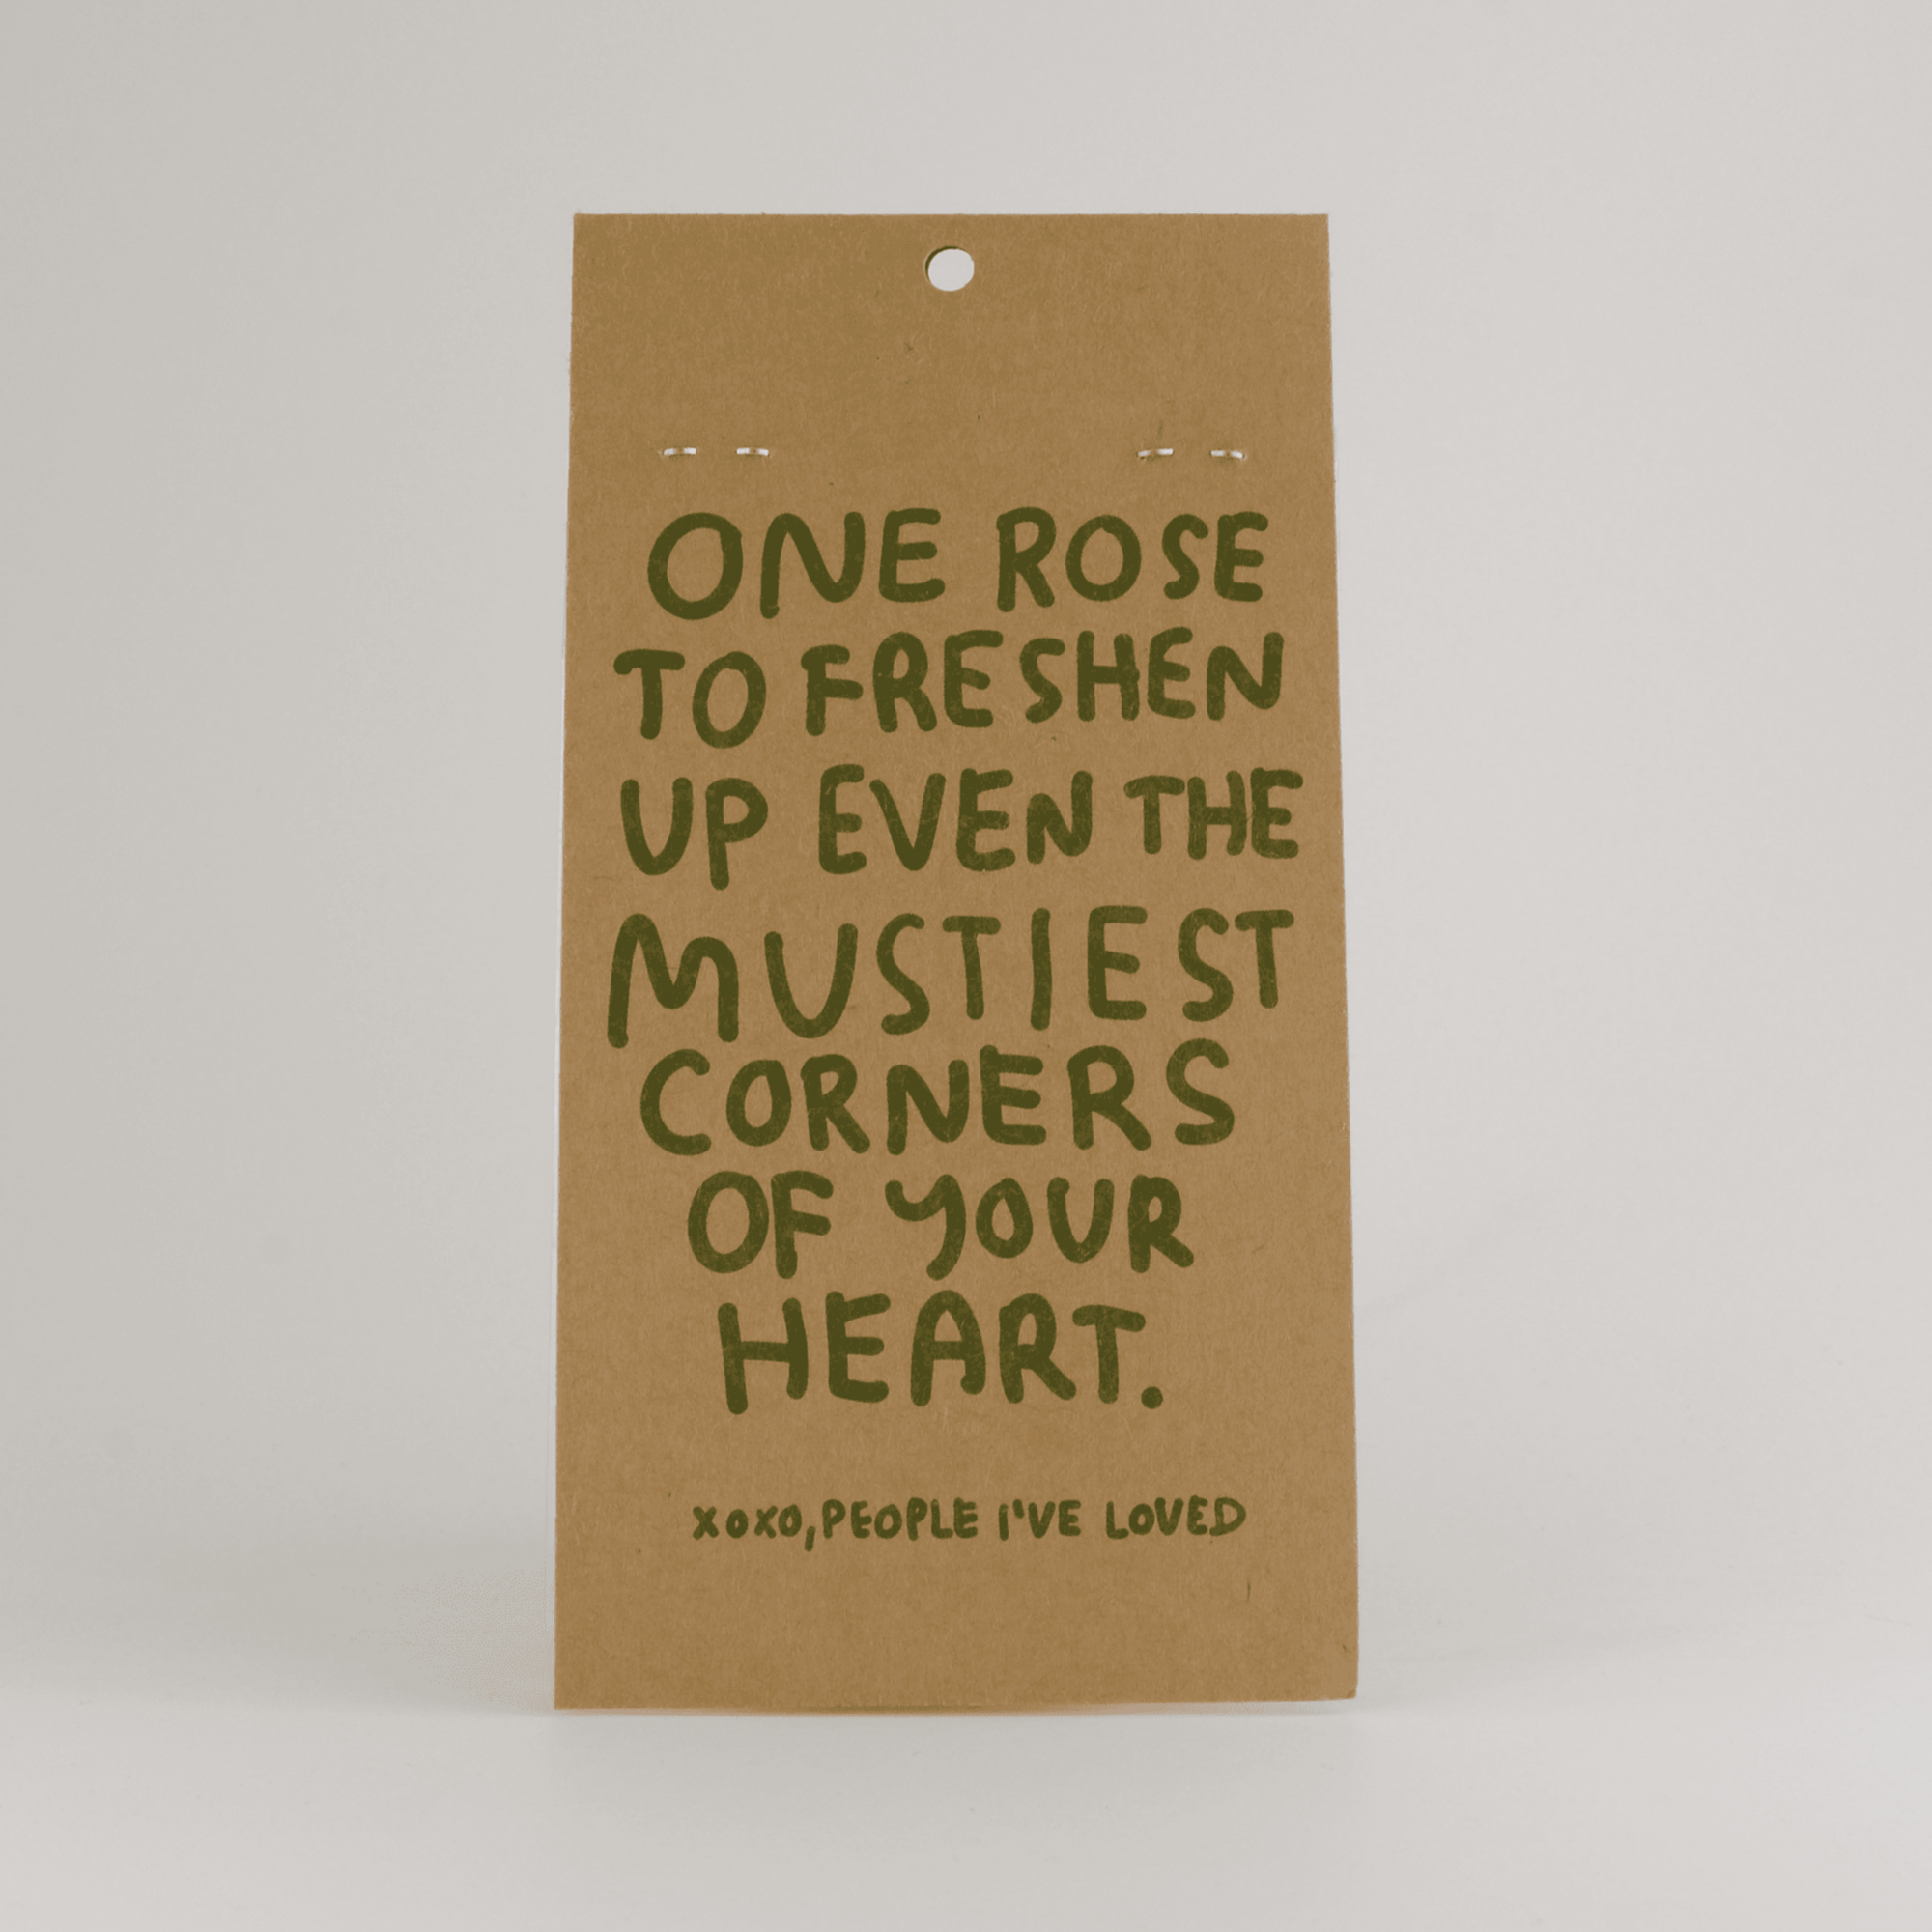 ONE ROSE
TO FRESHEN
UP EVEN THE
MUSTIEST
CORNERS
OF YOUR
HEART.
XOXO, PEOPLE I'VE LOVED